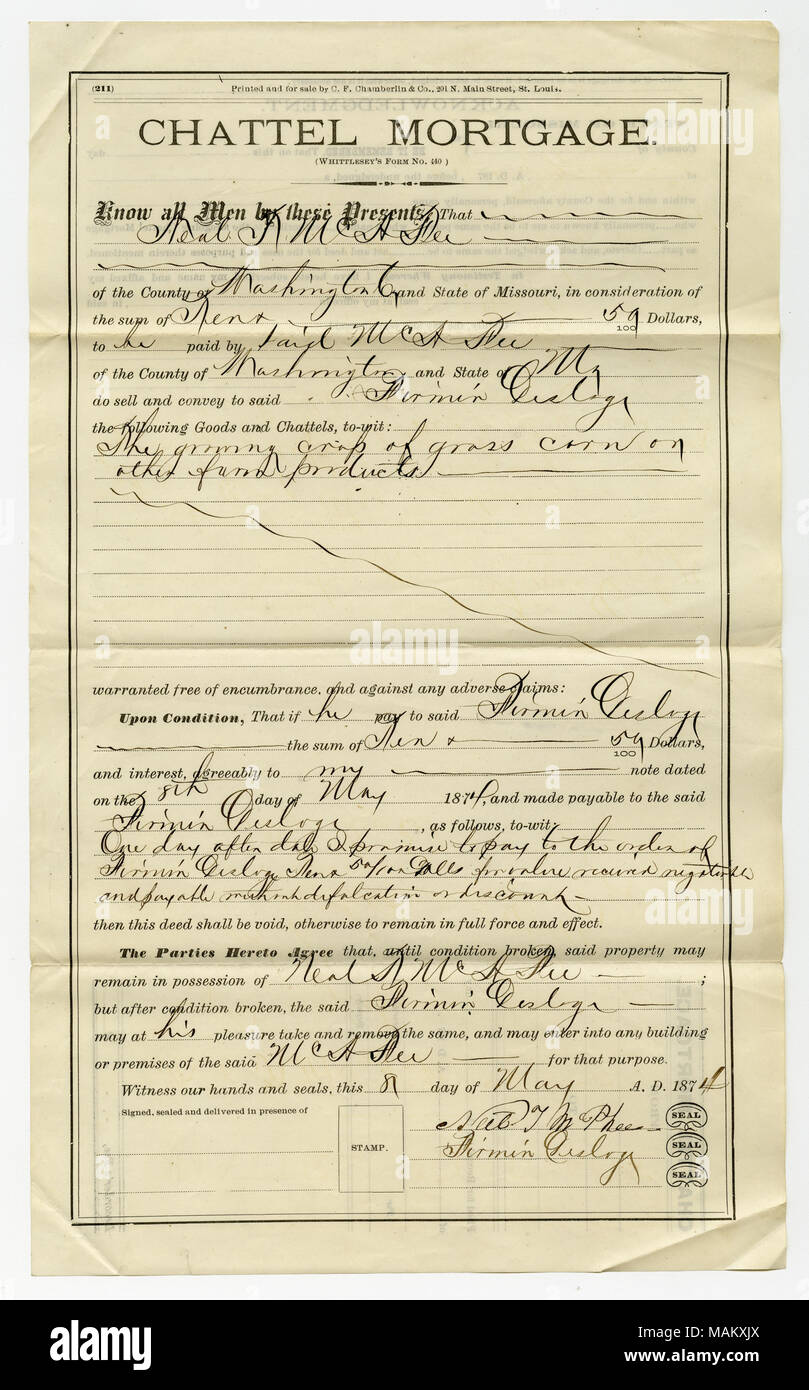 (211) Printed and for sale by C. F. Chamberlin & Co., 201 N. Main Street, St. Louis.
CHATTEL MORTGAGE.
(Whittlesey's Form No. 440)
Know all Men by these Presents, That
Neal T McA Fee
of the County of Washington Co and State of Missouri, in consideration of
the sum of Ten & 50/100 Dollars,
to he paid by said McA Fee
of the County of Washington and State of Mo
do sell and convey to said Firmin Desloge
the following Goods and Chattels, to-wit:
The growing crop of grass corn or
other farm products
warranted free of encumbrance, and against any adverse claims:
Upon Condition, That if he pay to said Firmin Desloge
the sum of Ten & 50/100 Dollars,
and interest, agreeably to my note dated
on the 8th day of May 1874, and made payable to the said
Firmin Desloge, as follows, to-wit:
One day after date I promise to pay to the order of
Firmin Desloge Ten & 50/100 Dolls for value received negotiable
and payable without defalcation or discount
then this deed shall be void, otherwise to remain in full force and effect.
The Parties Hereto Agree that, until condition broken, said property may
remain in possession of Neal T McA Fee ;
but after condition broken, the said Firmin Desloge
may at his pleasure take and remove the same, and may enter into any building
or premises of the said McA Fee for that purpose.
Witness our hands and seals, this 8 day of May A. D. 1874
Signed, sealed and delivered in presence of
STAMP.
Neal T McPhee SEAL
Firmin Desloge SEAL
SEAL
alamy
Image ID: MAKXJX
www.alamy.com